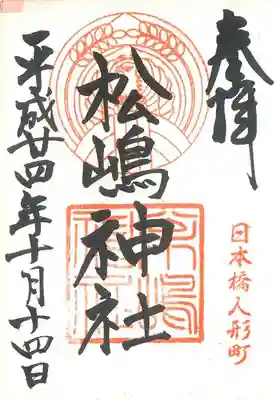 奉拝
日本橋人形町
松嶋神社
平成廿四年十月十四日